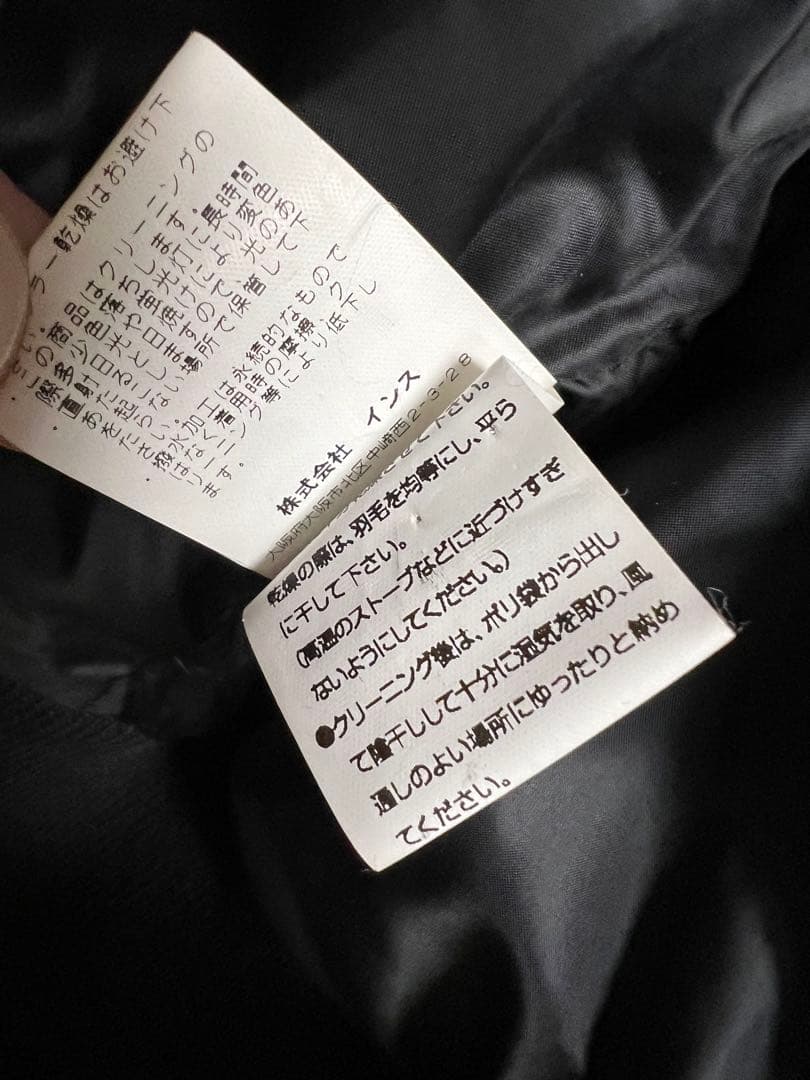 ラー乾燥はお避け下
さい。
・この商品は、クリーニングの
際多少色落ちします。
・直射日光や蛍光灯に長時間
あたると日焼けにより変色
を起こしますので、光のあ
たらない場所で保管して下
さい。
・撥水加工は永続的なもので
はなく、着用時の摩擦、ク
リーニング等により低下し
ます。
株式会社 インス
大阪府大阪市北区中崎西2-3-28
下さい。
乾燥の際は、羽毛を均等にし、平ら
に干して下さい。
(高温のストーブなどに近づけすぎ
ないようにしてください。)
●クリーニング後は、ポリ袋から出し
て陰干しして十分に湿気を取り、風
通しのよい場所にゆったりと納め
てください。